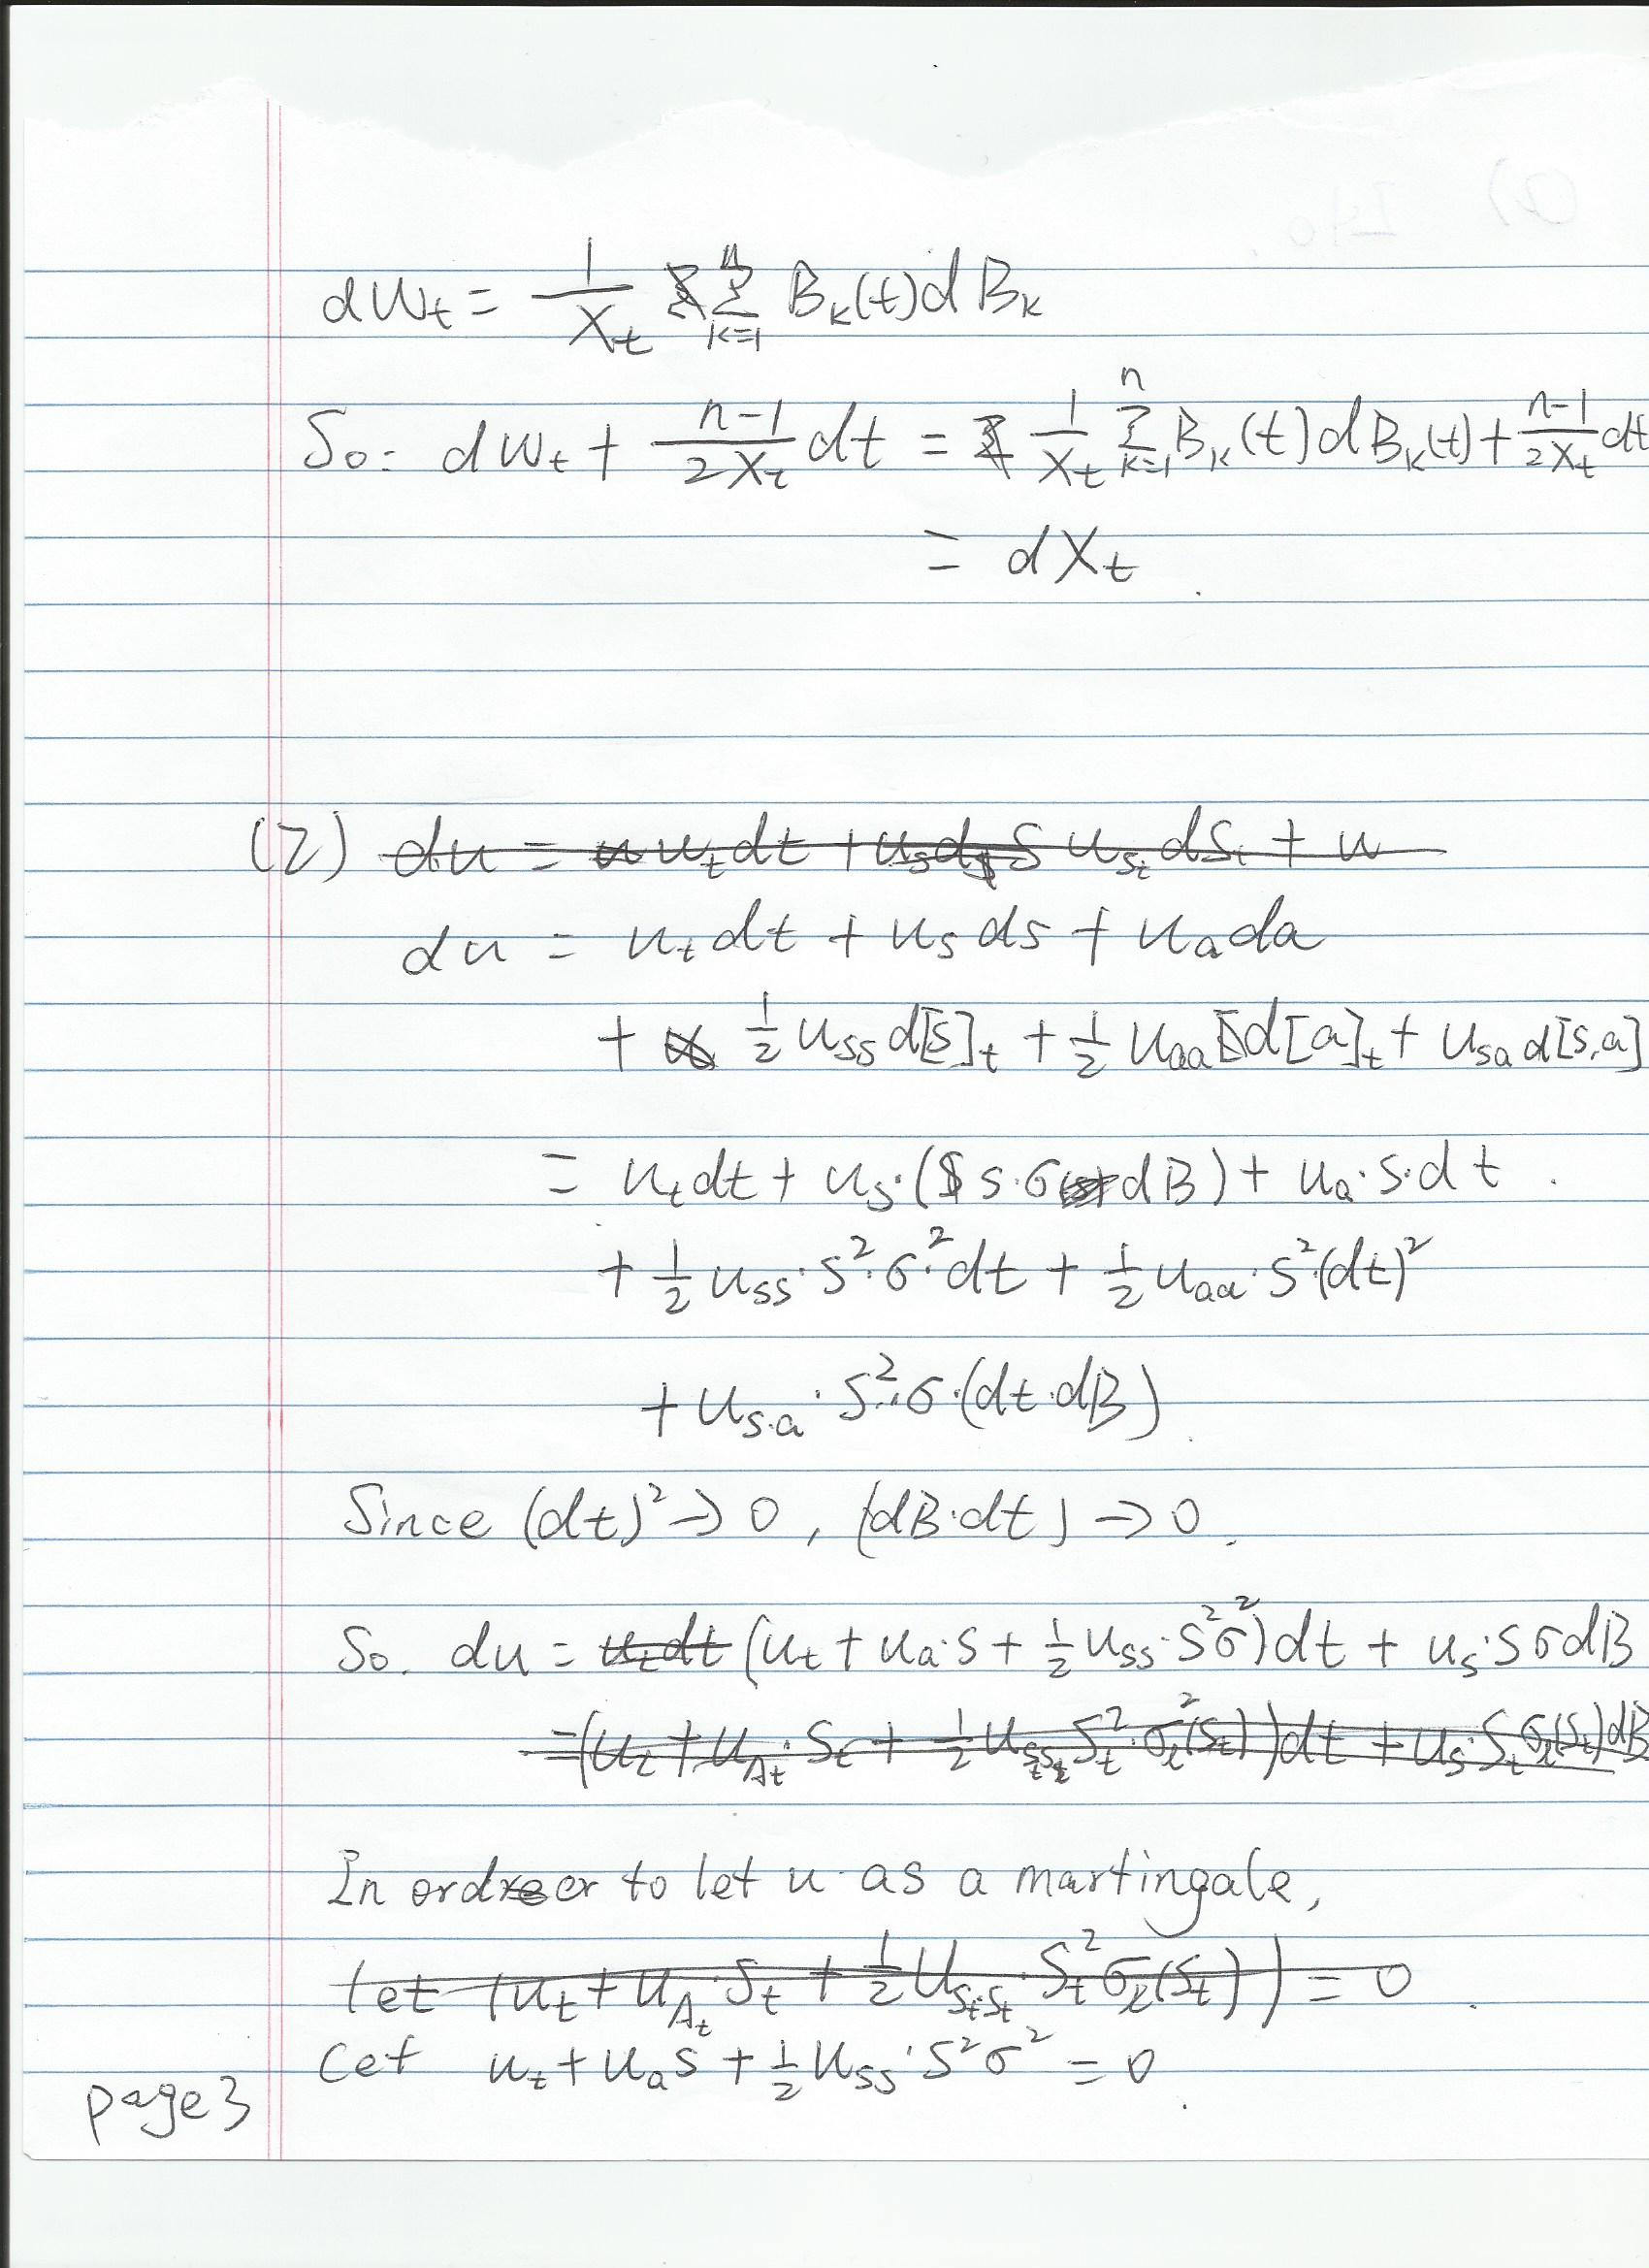 dW_t = \frac{1}{X_t} \sum_{k=1}^{n} B_k(t) dB_k
So: dW_t + \frac{n-1}{2X_t} dt = \frac{1}{X_t} \sum_{k=1}^{n} B_k(t) dB_k(t) + \frac{n-1}{2X_t} dt
= dX_t.
(2) ~~du = u_t dt + u_s ds u_{S_t} dS_t + u~~
du = u_t dt + u_s ds + u_a da
+ \frac{1}{2} u_{ss} d[s]_t + \frac{1}{2} u_{aa} d[a]_t + u_{sa} d[s,a]
= u_t dt + u_s·(s·σ dB) + u_a·s·dt.
+ \frac{1}{2} u_{ss}·s^2·σ^2·dt + \frac{1}{2} u_{aa}·s^2·(dt)^2
+ u_{s·a}·s^2·σ·(dt·dB).
Since (dt)^2 → 0, (dB·dt) → 0.
So. du = ~~u_t dt~~ (u_t + u_a·s + \frac{1}{2} u_{ss}·s^2σ^2)dt + u_s·sσdB
~~=(u_t + u_{A_t}·S_t + \frac{1}{2} u_{S_tS_t} S_t^2·σ_l^2(S_t))dt + u_s·S_tσ_l(S_t)dB~~
In order to let u as a martingale,
~~let (u_t + u_{A_t}·S_t + \frac{1}{2} u_{S_tS_t}·S_t^2σ_l(S_t)) = 0.~~
Let u_t + u_a s + \frac{1}{2} u_{ss}·s^2σ^2 = 0.
page 3